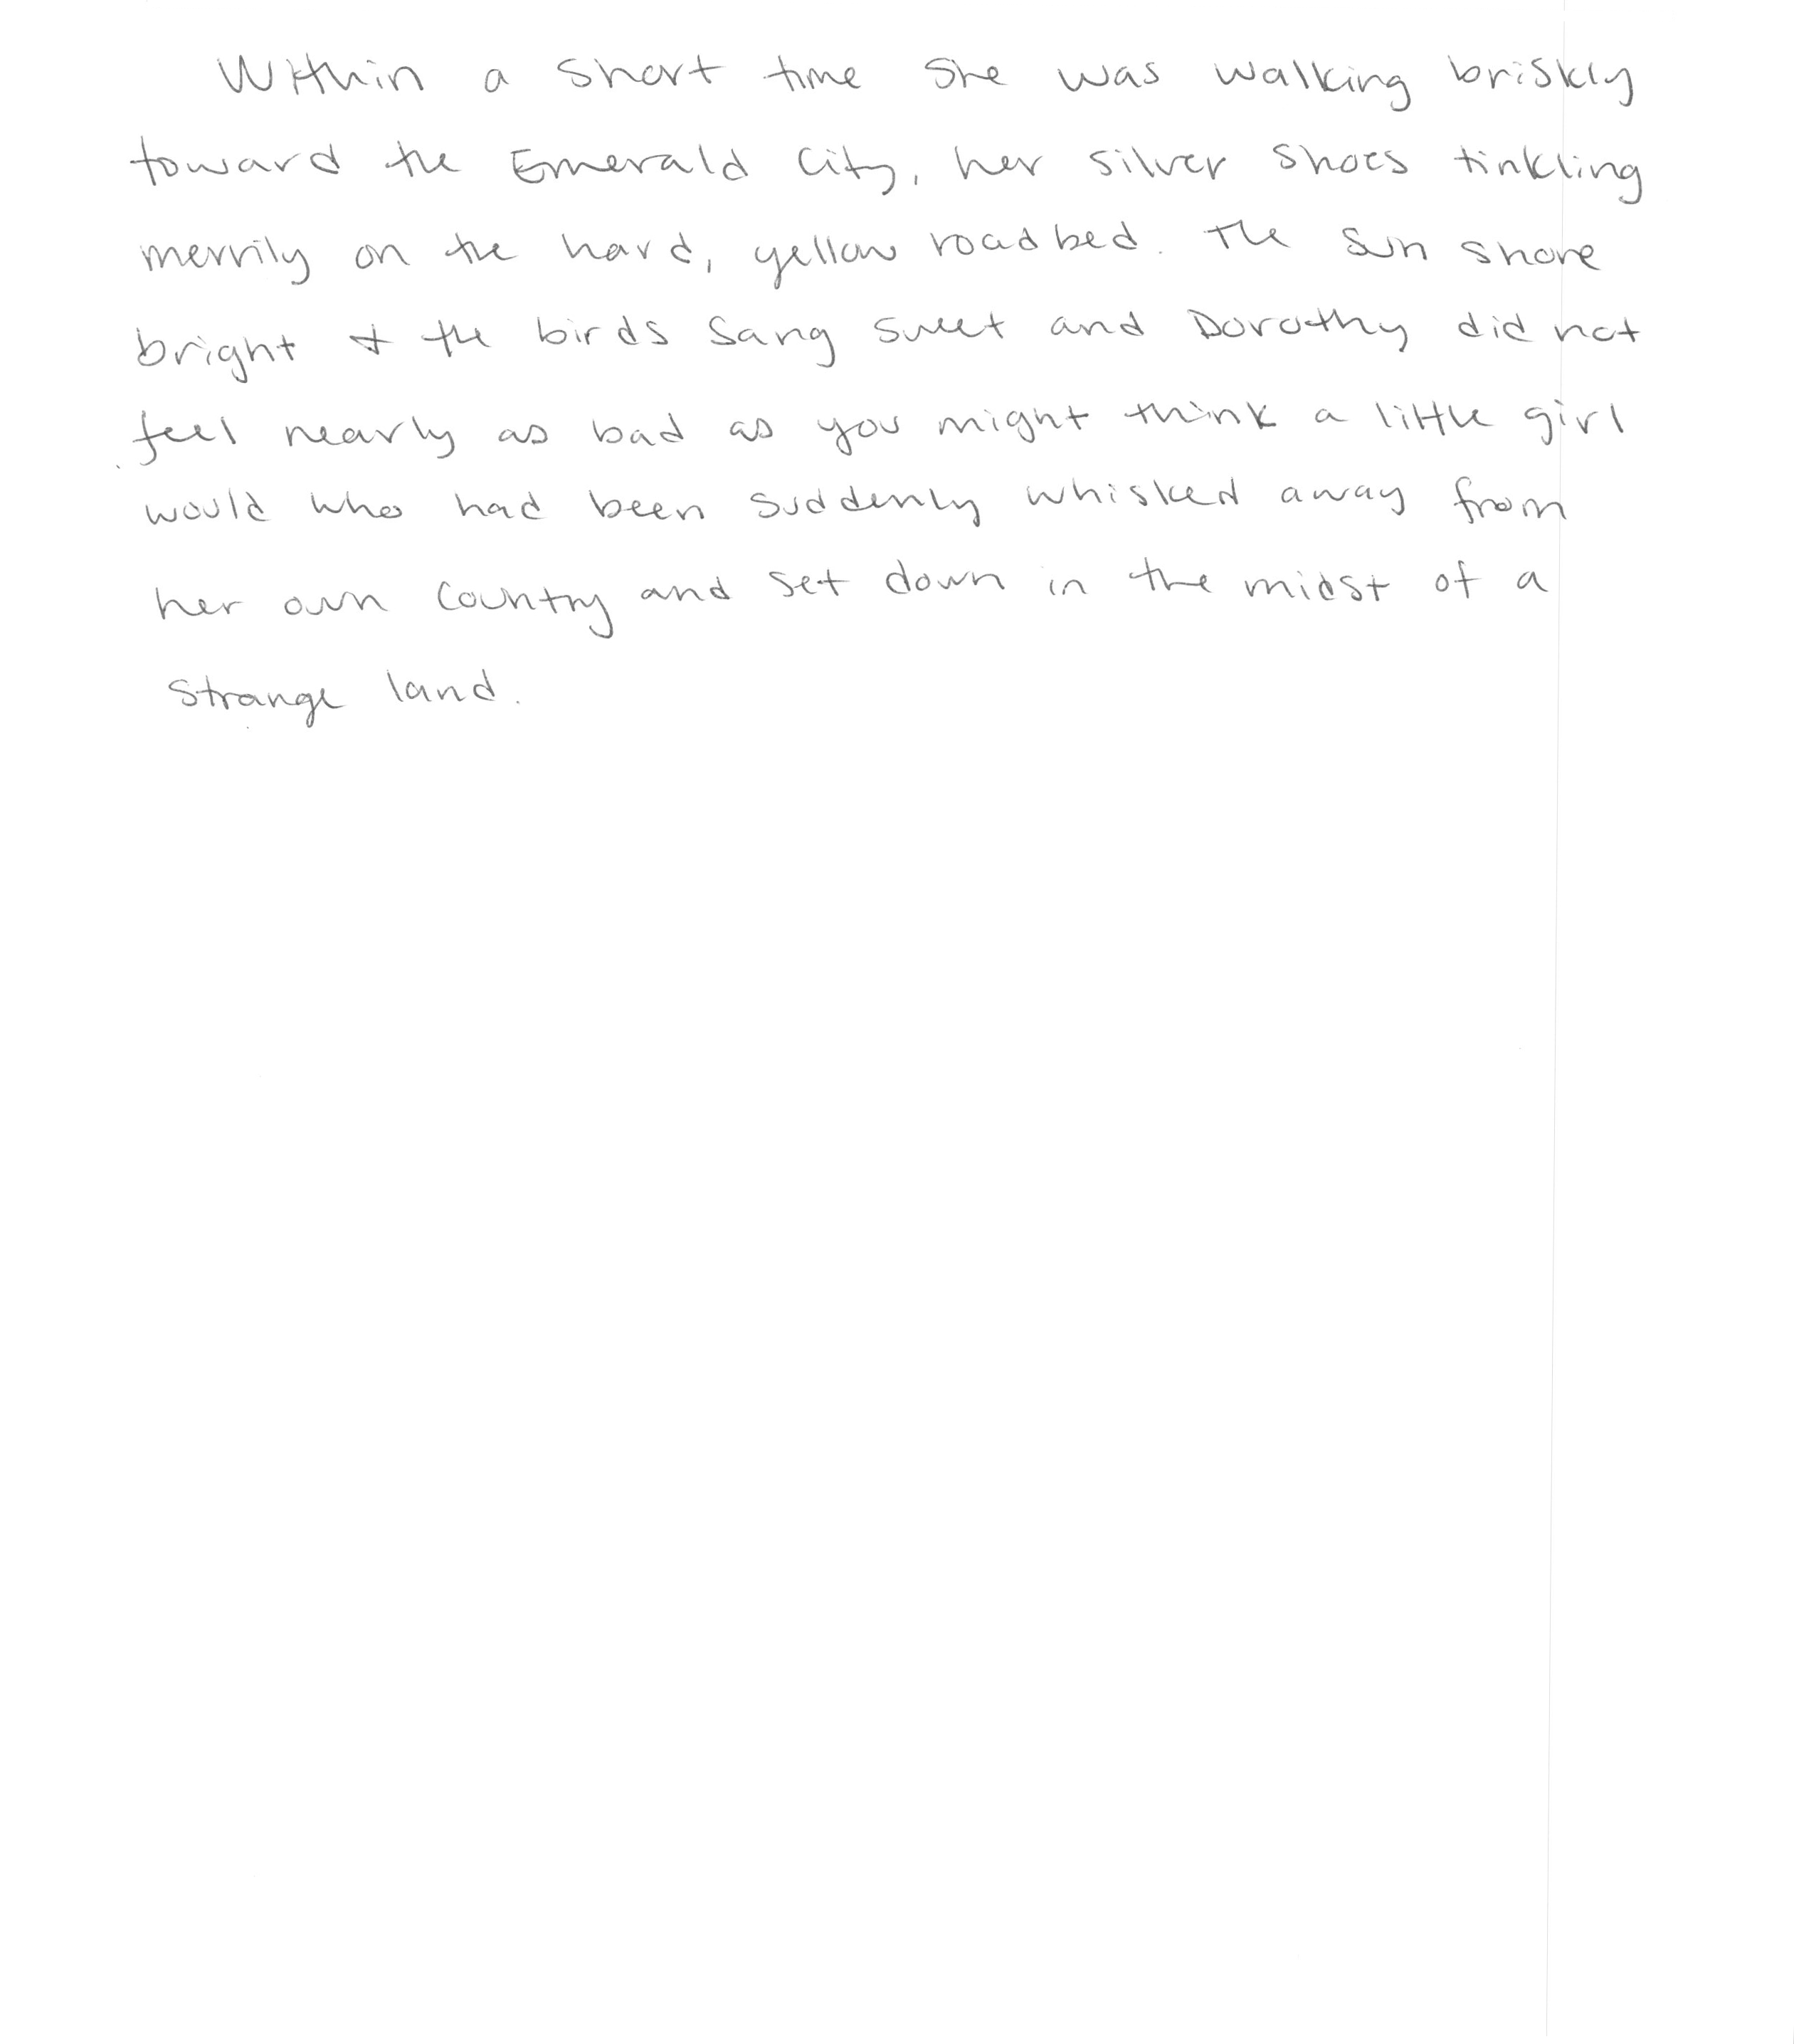 Within a short time she was walking briskly
toward the Emerald City, her silver shoes tinkling
merrily on the hard, yellow roadbed. The sun shone
bright & the birds sang sweet and Dorothy did not
feel nearly as bad as you might think a little girl
would who had been suddenly whisked away from
her own country and set down in the midst of a
strange land.